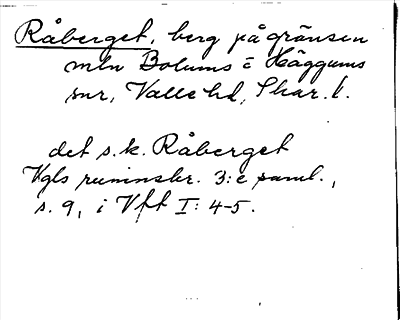 Råberget, berg på gränsen
mln Bolums o Häggums
snr, Valle hd, Skar. l.
det s.k. Råberget
Vgls runinskr. 3:e saml.,
s. 9, i Vft I: 4-5.